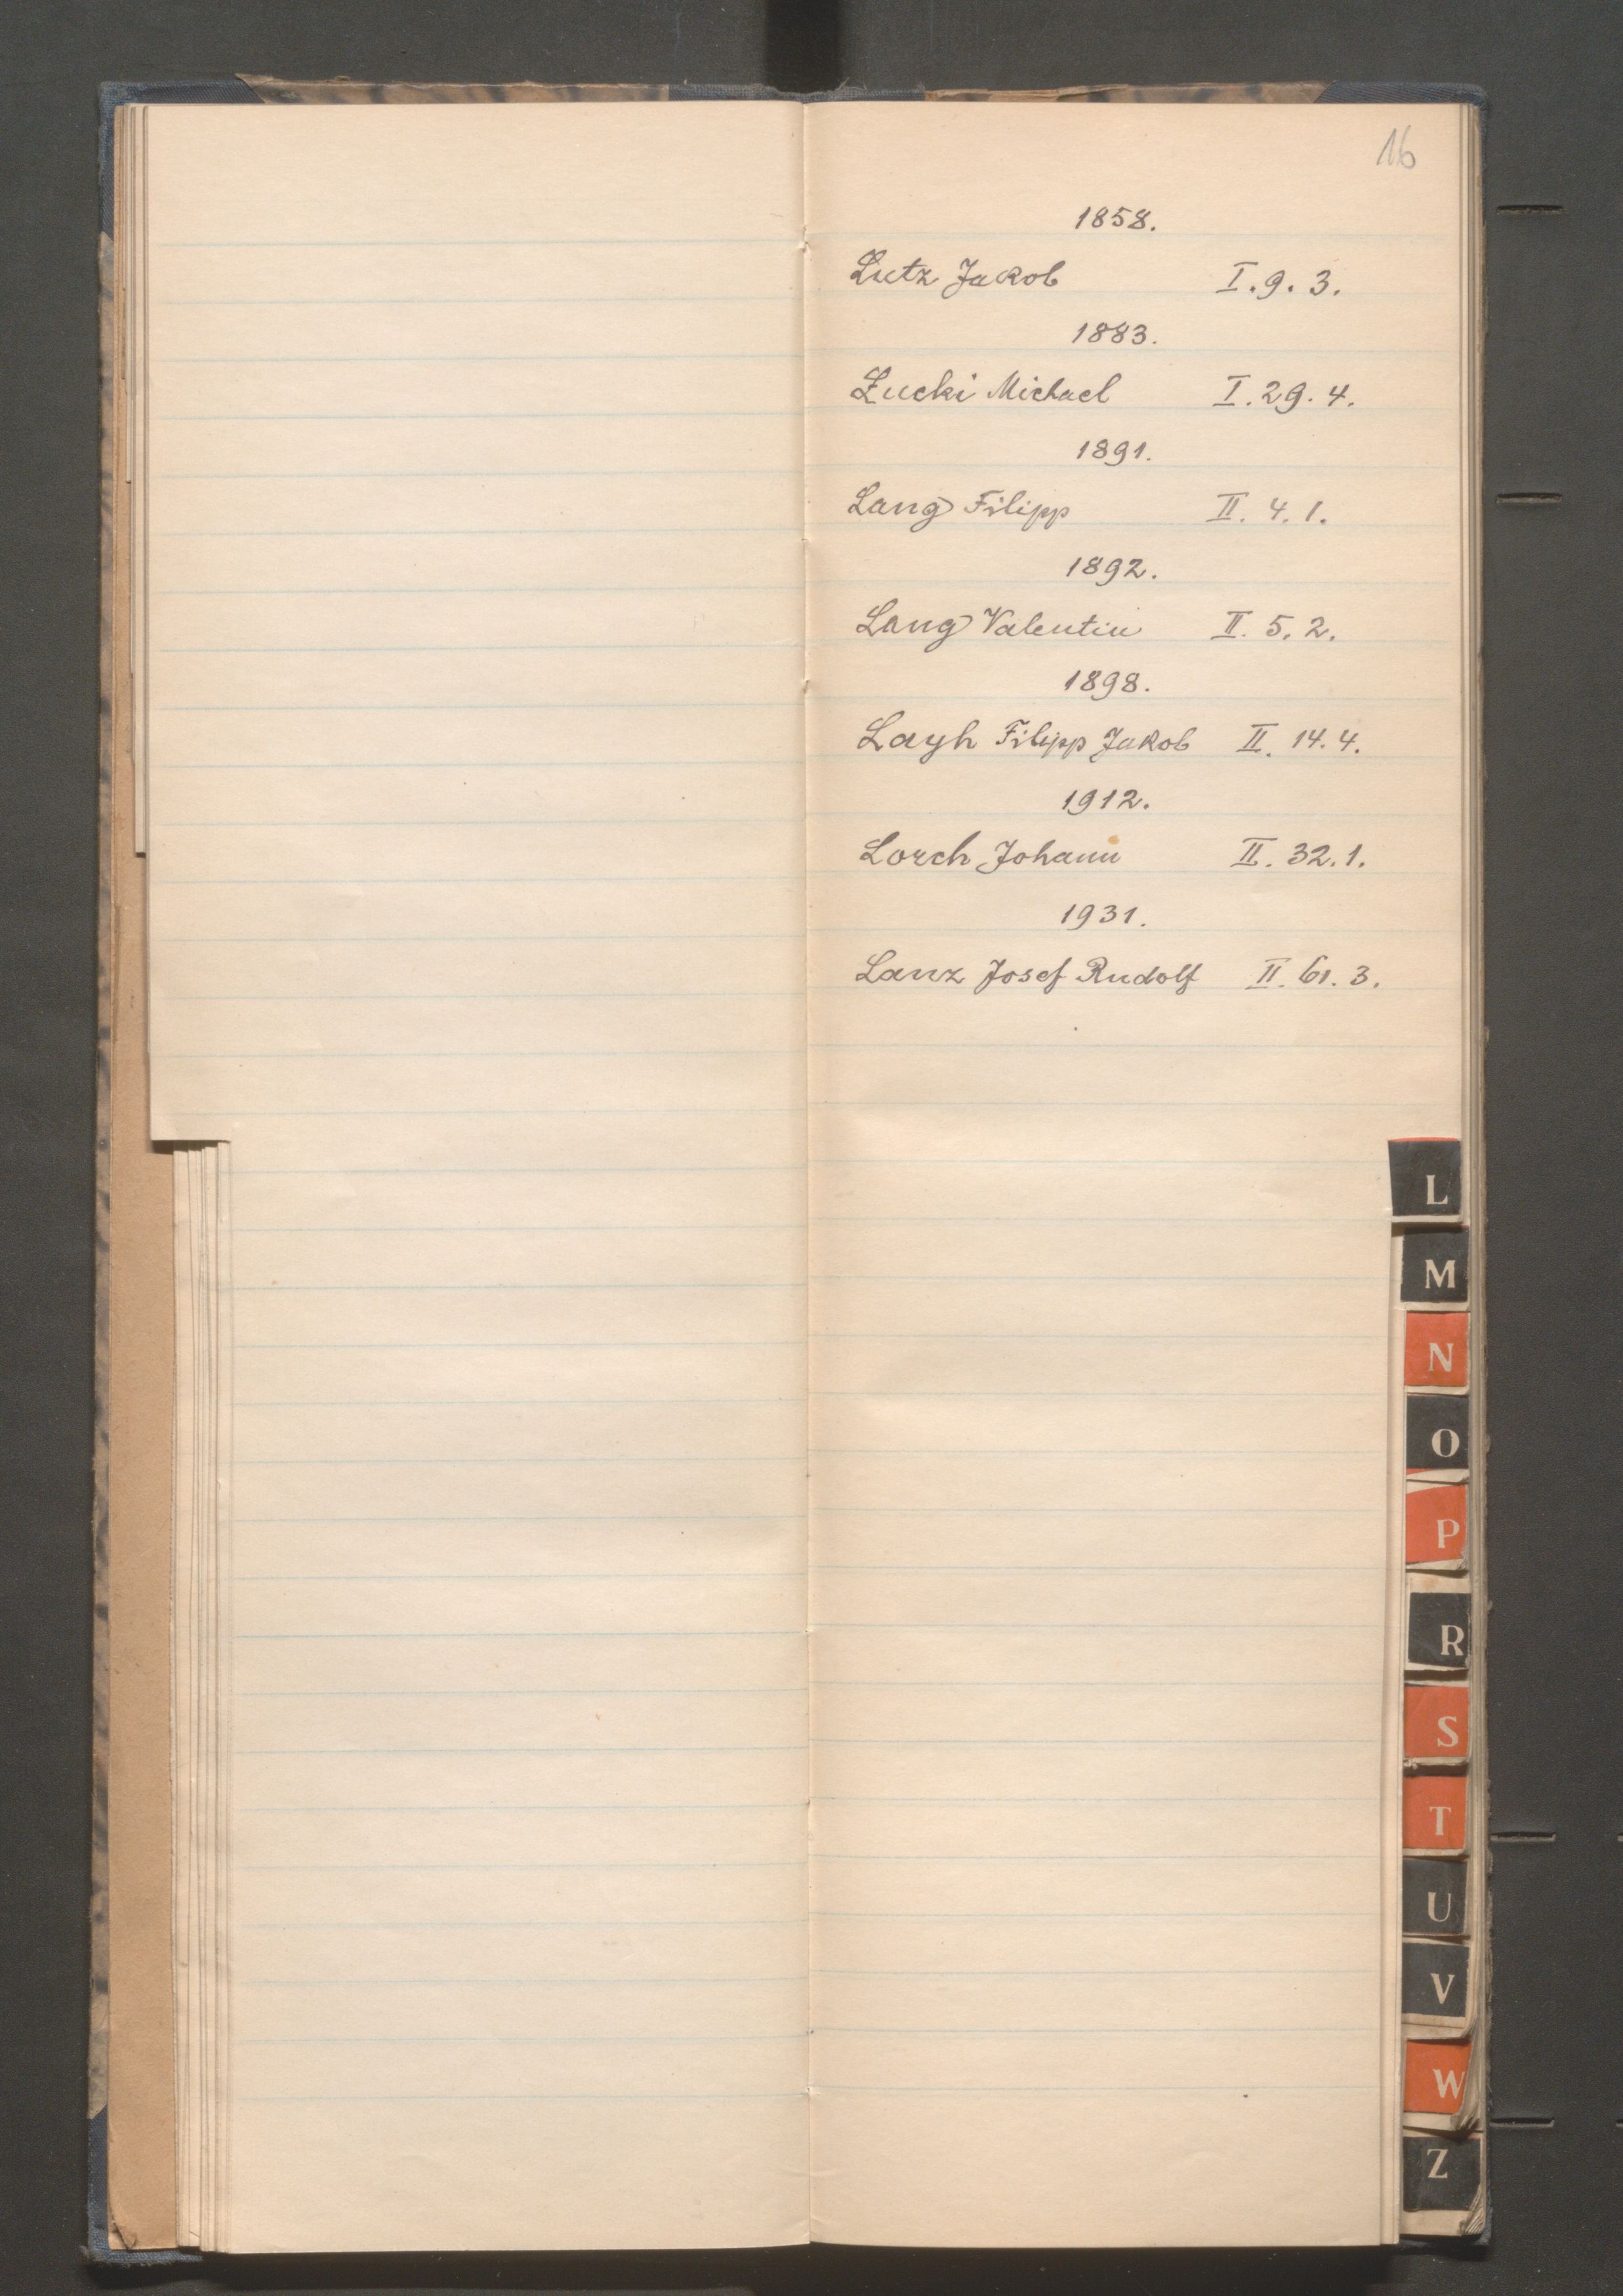 16
1858.
Lutz Jakob I. 9. 3.
1883.
Łucki Michael I. 29. 4.
1891.
Lang Filipp II. 4. 1.
1892.
Lang Valentin II. 5. 2.
1898.
Layh Filipp Jakob II. 14. 4.
1912.
Lorch Johann II. 32. 1.
1931.
Lanz Josef Rudolf II. 61. 3.
L
M
N
O
P
R
S
T
U
V
W
Z